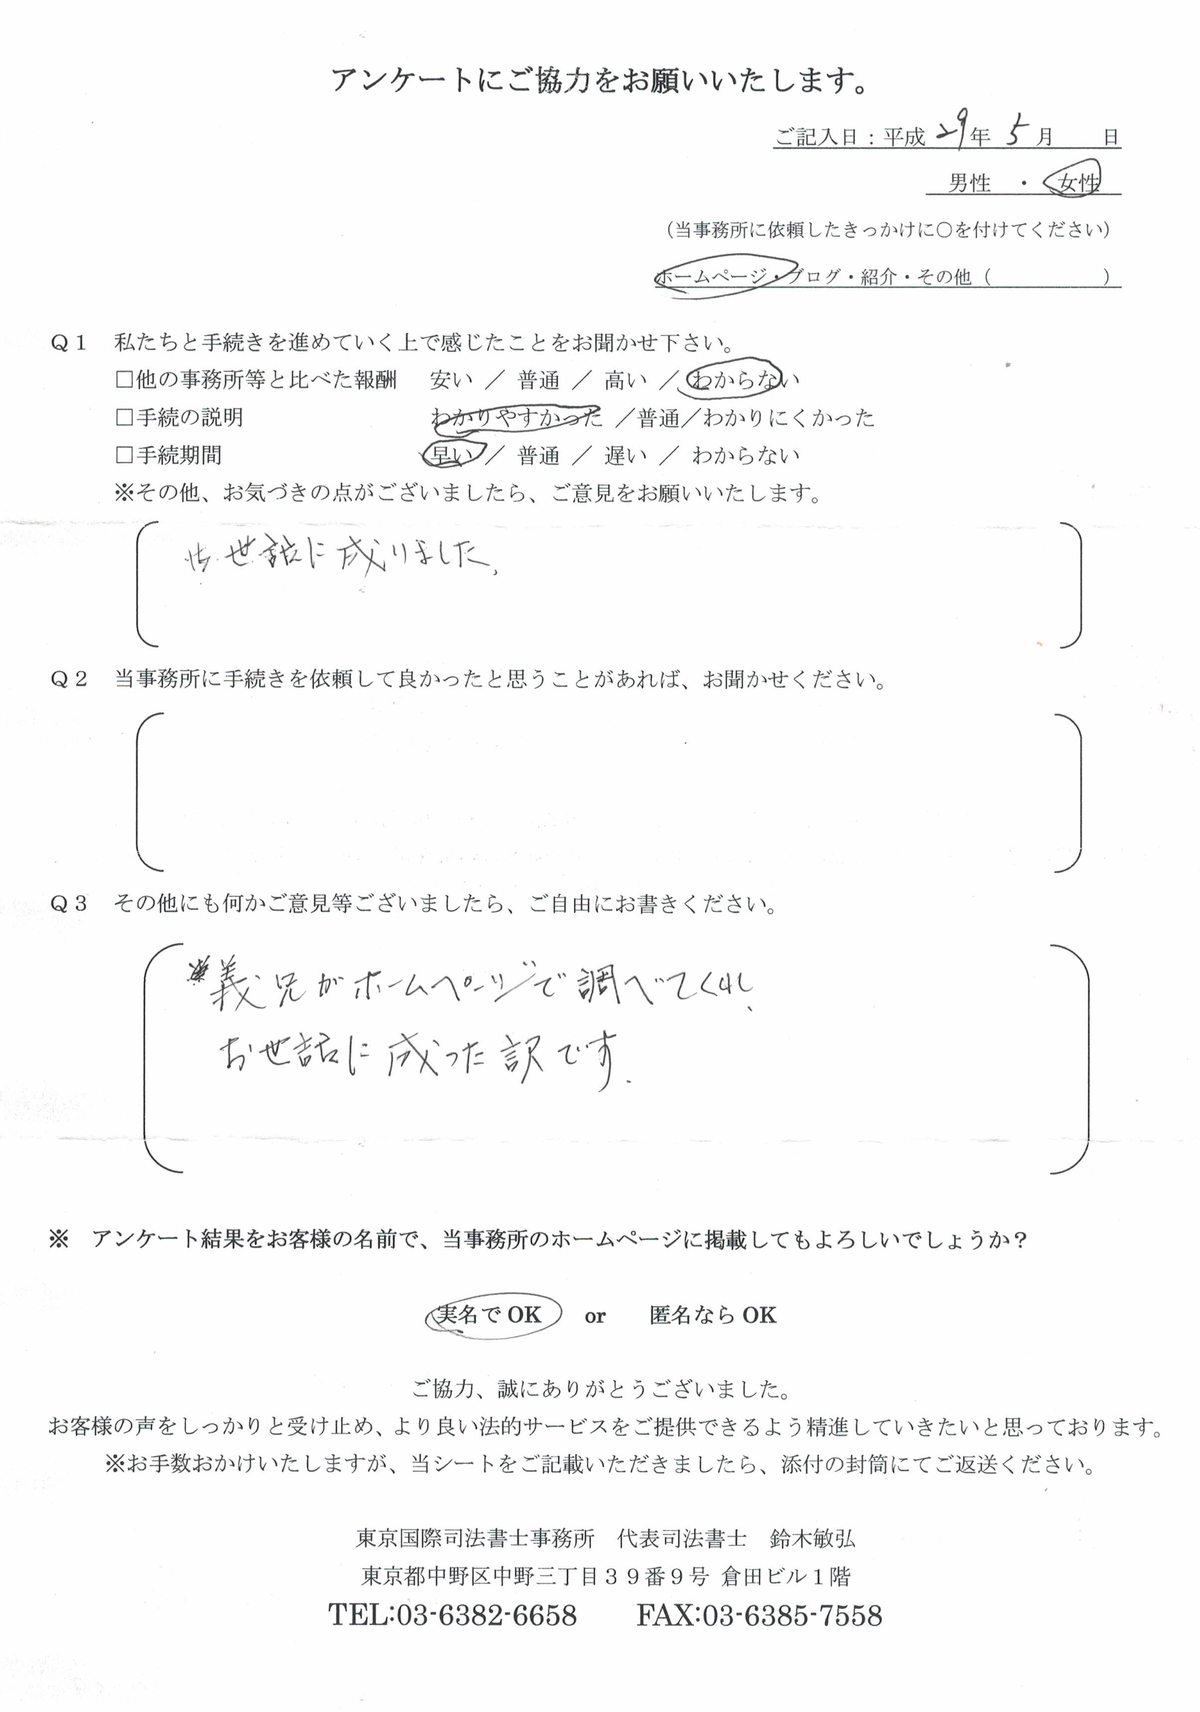 アンケートにご協力をお願いいたします。
ご記入日：平成 29年 5月 日
男性 ・ 女性
（当事務所に依頼したきっかけに○を付けてください）
ホームページ・ブログ・紹介・その他（ ）
Ｑ１ 私たちと手続きを進めていく上で感じたことをお聞かせ下さい。
□他の事務所等と比べた報酬 安い ／ 普通 ／ 高い ／ わからない
□手続の説明 わかりやすかった ／普通／わかりにくかった
□手続期間 早い ／ 普通 ／ 遅い ／ わからない
※その他、お気づきの点がございましたら、ご意見をお願いいたします。
お世話に成りました。
Ｑ２ 当事務所に手続きを依頼して良かったと思うことがあれば、お聞かせください。
Ｑ３ その他にも何かご意見等ございましたら、ご自由にお書きください。
※義兄がホームページで調べてくれ、
お世話に成った訳です.
※ アンケート結果をお客様の名前で、当事務所のホームページに掲載してもよろしいでしょうか？
実名でOK or 匿名ならOK
ご協力、誠にありがとうございました。
お客様の声をしっかりと受け止め、より良い法的サービスをご提供できるよう精進していきたいと思っております。
※お手数おかけいたしますが、当シートをご記載いただきましたら、添付の封筒にてご返送ください。
東京国際司法書士事務所 代表司法書士 鈴木敏弘
東京都中野区中野三丁目３９番９号 倉田ビル１階
TEL:03-6382-6658 FAX:03-6385-7558